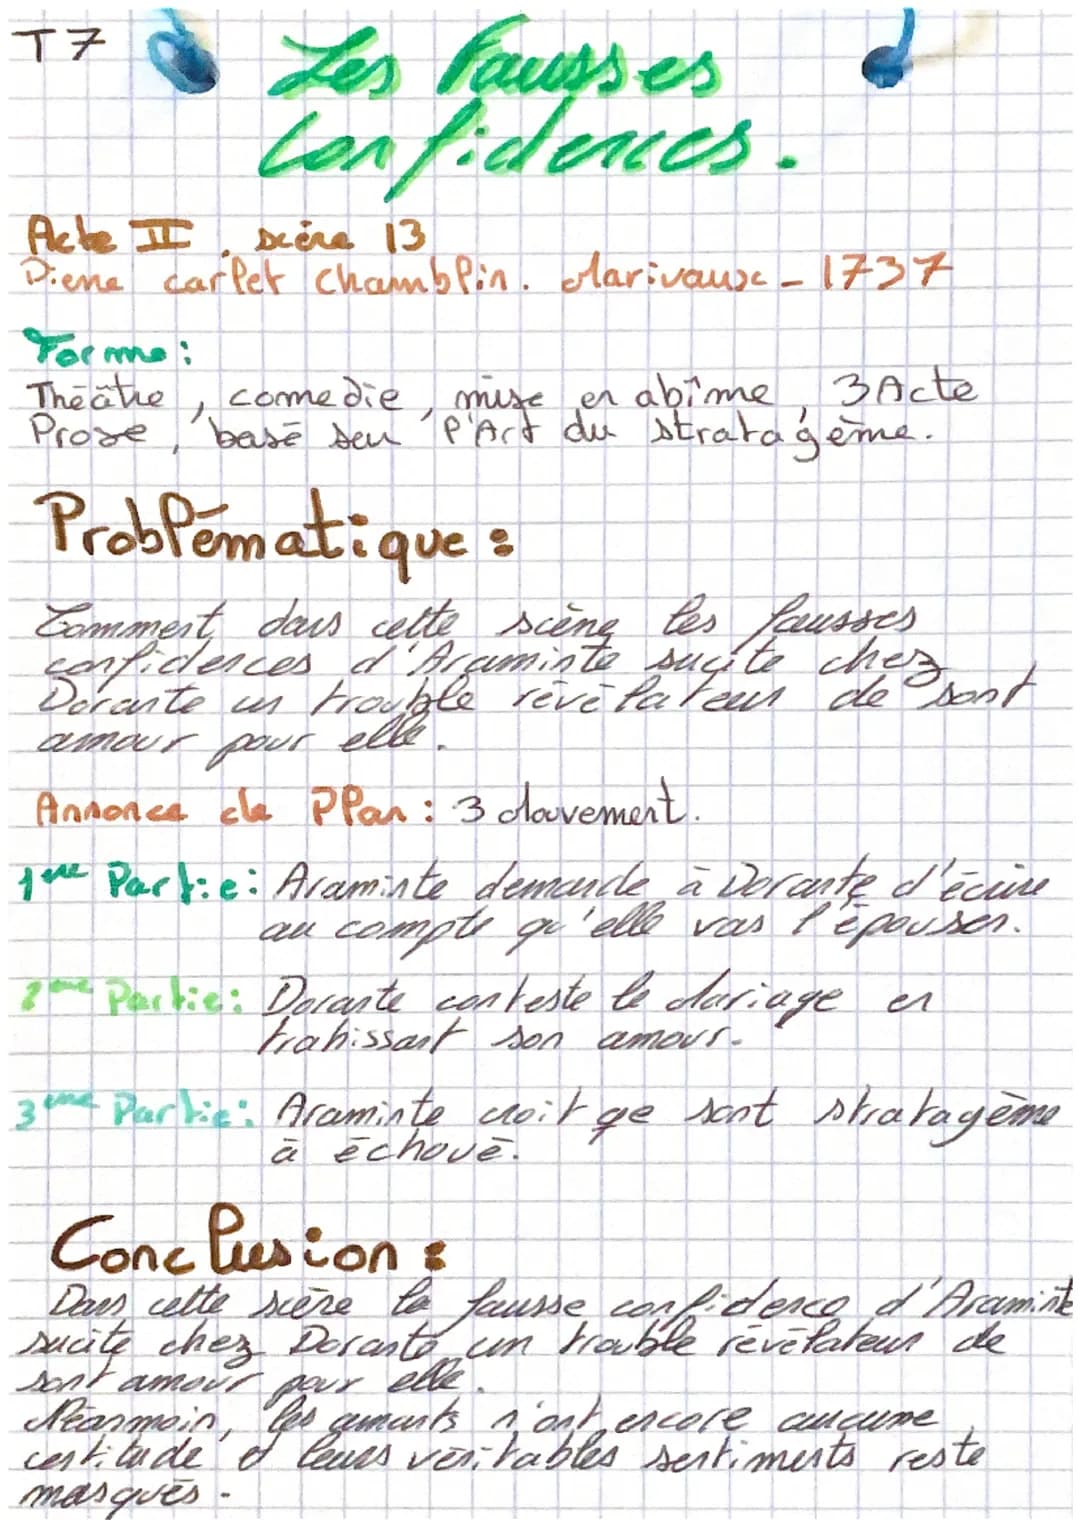 T7
Les Fausses
Confidences.
Acte II, scène 13
Piere carlet Chamblin. Marivaux - 1737
Forme:
Théâtre, comedie, mise en abîme, 3 Acte
Prose, basé seu l'Art du stratagème.
Problématique :
Comment, dans cette scène les fausses
confidences d'Araminte sucite chez
Dorante un trouble révélateur de sont
amour pour elle.
Annonce de Plan : 3 Mouvement.
1ère Partie: Araminte demande à Dorante d'écrire
au compte qu'elle vas l'épouser.
2ème Partie: Dorante conteste le Mariage en
trahissant son amour.
3ème Partie: Araminte croit qe sont stratagème
à échoué.
Conclusion :
Dans cette scène la fausse confidence d'Araminte
sucite chez Dorante un trouble révélateur de
sont amour pour elle.
Néanmoin, les amants n'ont encore aucune
certitude et leurs véritables sentiments reste
masqués.